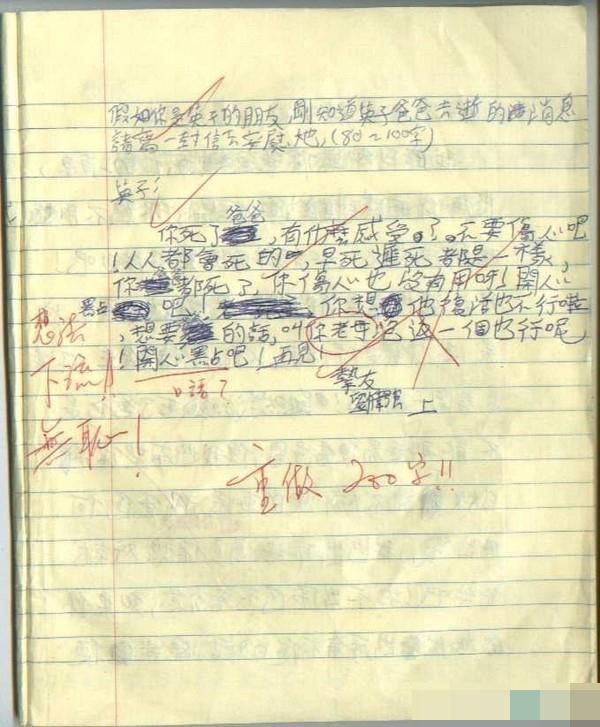 假如你是英子的朋友,剛知道英子爸爸去逝的消息
請寫一封信去安慰她,(80~100字)
英子:
你死了爸爸,有什麼感受。了。不要傷心吧
!人人都會死的,早死遲死都是一樣,
你爸爸都死了,你傷心也沒有用呀!開心
黑占吧!你想他復活也不行啦
,想要的話,叫你老母兒返一個也行呢
!開心黑占吧!再見!
摯友
劉 上
想法
下流!!
無恥!
口語?
重做 200字!!